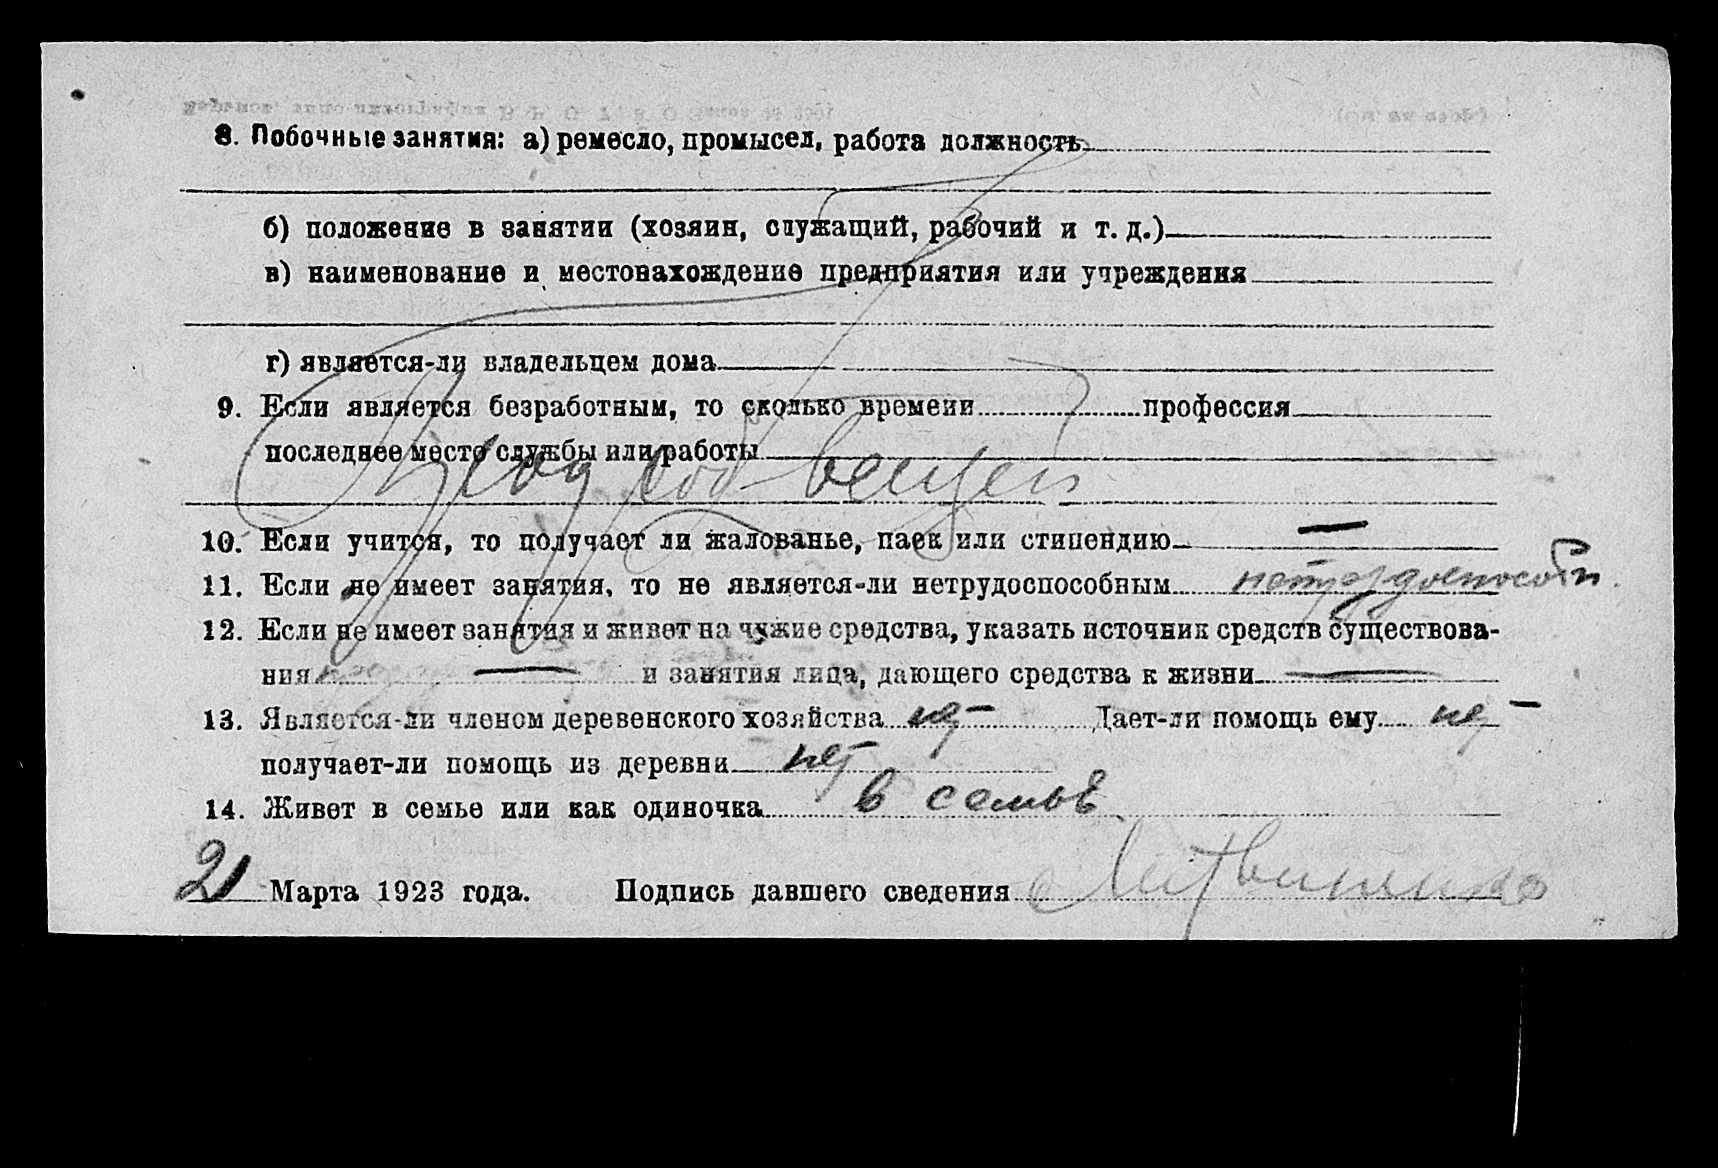 8. Побочные занятия: а) ремесло, промысел, работа должность
б) положение в занятии (хозяин, служащий, рабочий и т. д.)
в) наименование и местонахождение предприятия или учреждения
г) является-ли владельцем дома
9. Если является безработным, то сколько времени профессия
последнее место службы или работы
10. Если учится, то получает ли жалованье, паек или стипендию —
11. Если не имеет занятия, то не является-ли нетрудоспособным нетрудоспособн.
12. Если не имеет занятия и живет на чужие средства, указать источник средств существова-
ния — и занятия лица, дающего средства к жизни —
13. Является-ли членом деревенского хозяйства нет Дает-ли помощь ему нет
получает-ли помощь из деревни нет
14. Живет в семье или как одиночка в семье
21 Марта 1923 года. Подпись давшего сведения Литвиненко